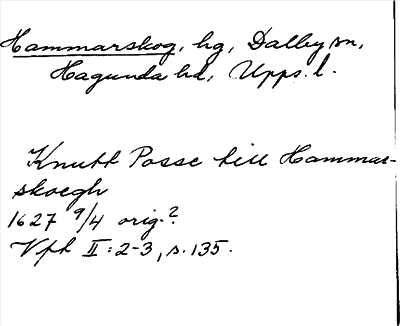 Hammarskog, hg, Dalby sn,
Hagunda hd, Upps. l.
Knutt Posse till Hammar-
skoegh
1627 9/4 orig.?
Vph II:2-3, s. 135.